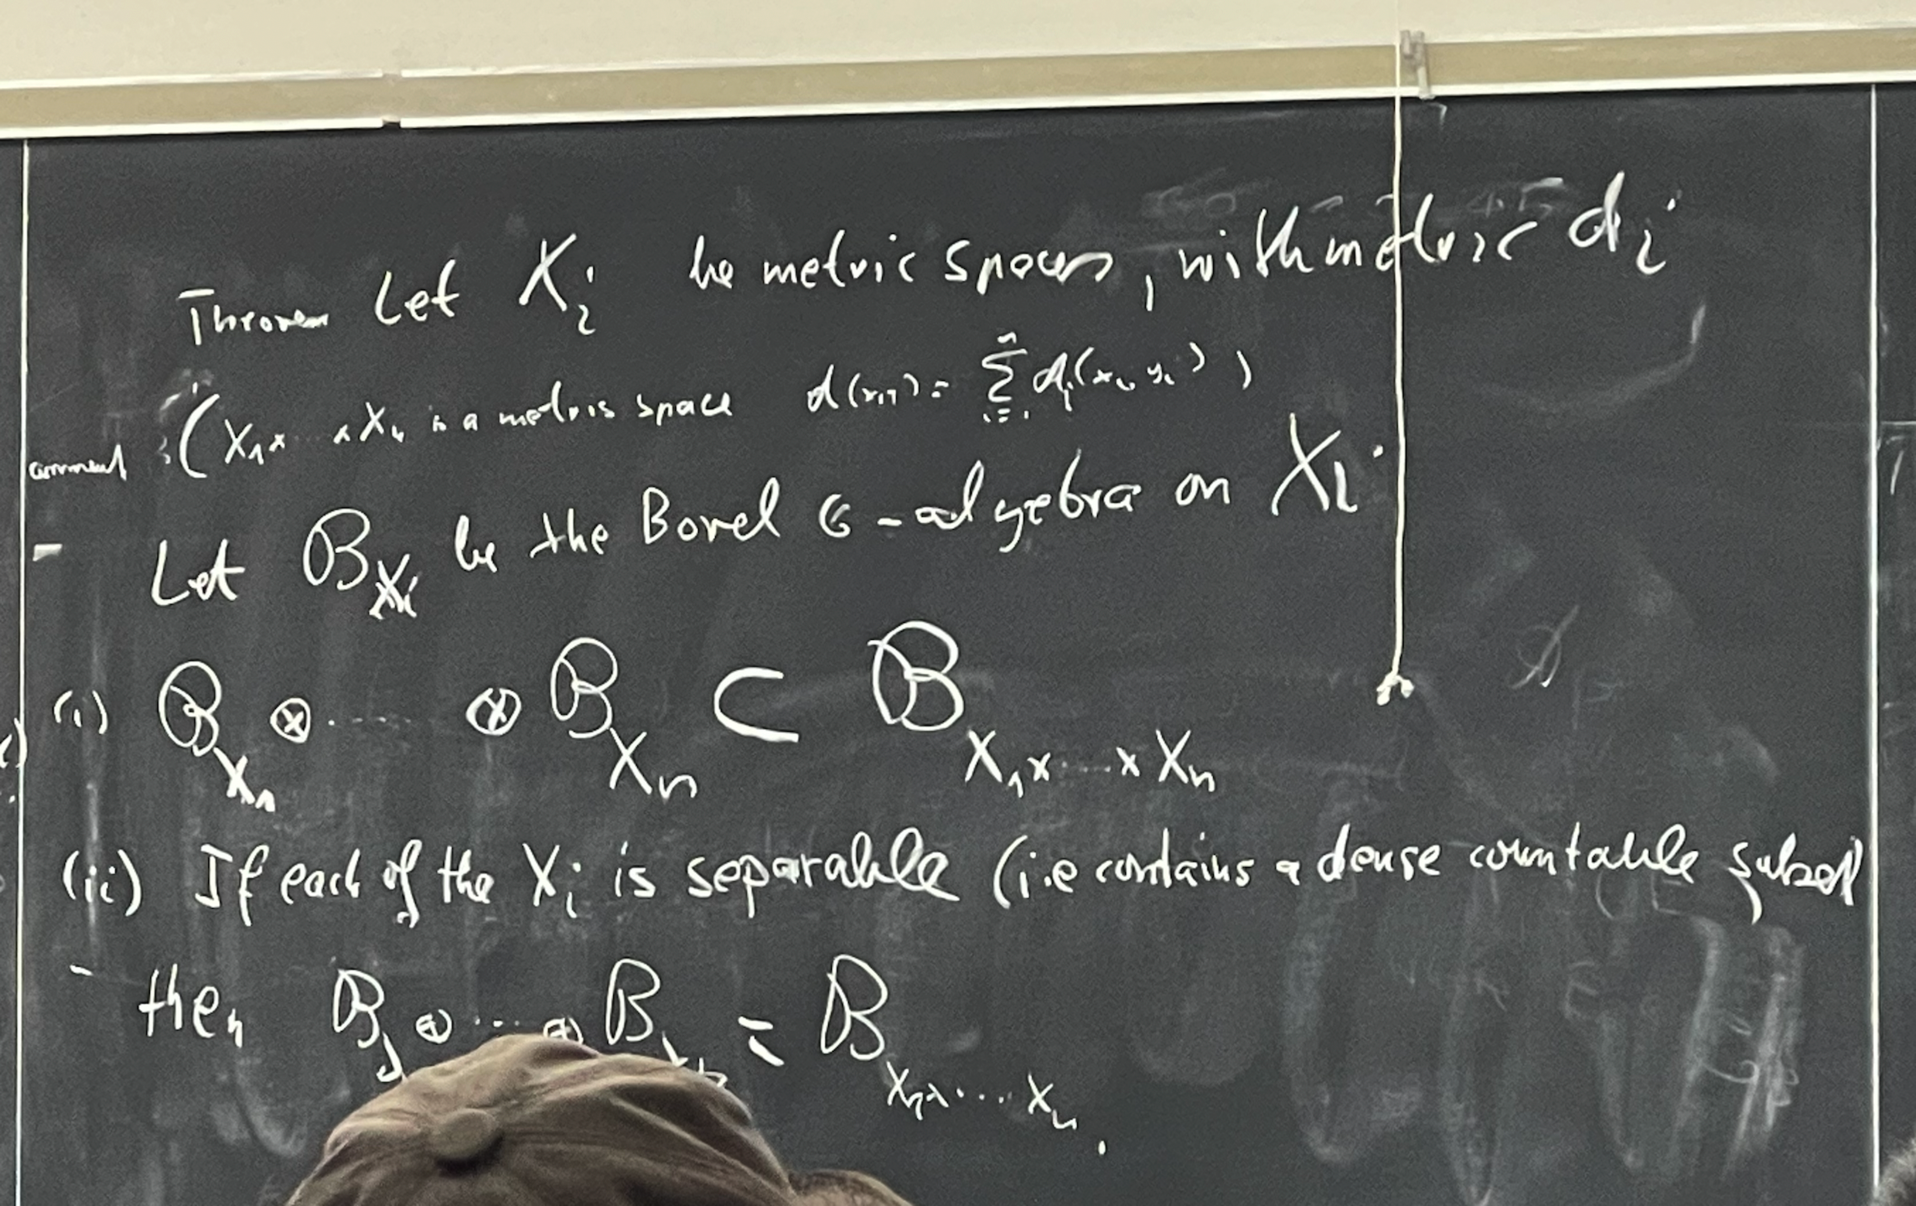 Theorem Let X_i be metric spaces, with metric d_i
comment : (X_1 x ... x X_n is a metric space d(x,y) = \sum_{i=1}^{n} d_i(x_i, y_i))
- Let B_{X_i} be the Borel σ-algebra on X_i.
(i) B_{X_1} ⊗ ..... ⊗ B_{X_n} ⊂ B_{X_1 x ... x X_n}
(ii) If each of the X_i is separable (i.e contains a dense countable subset)
- then B ⊗ ... ⊗ B = B_{X_1 x ... X_n}.